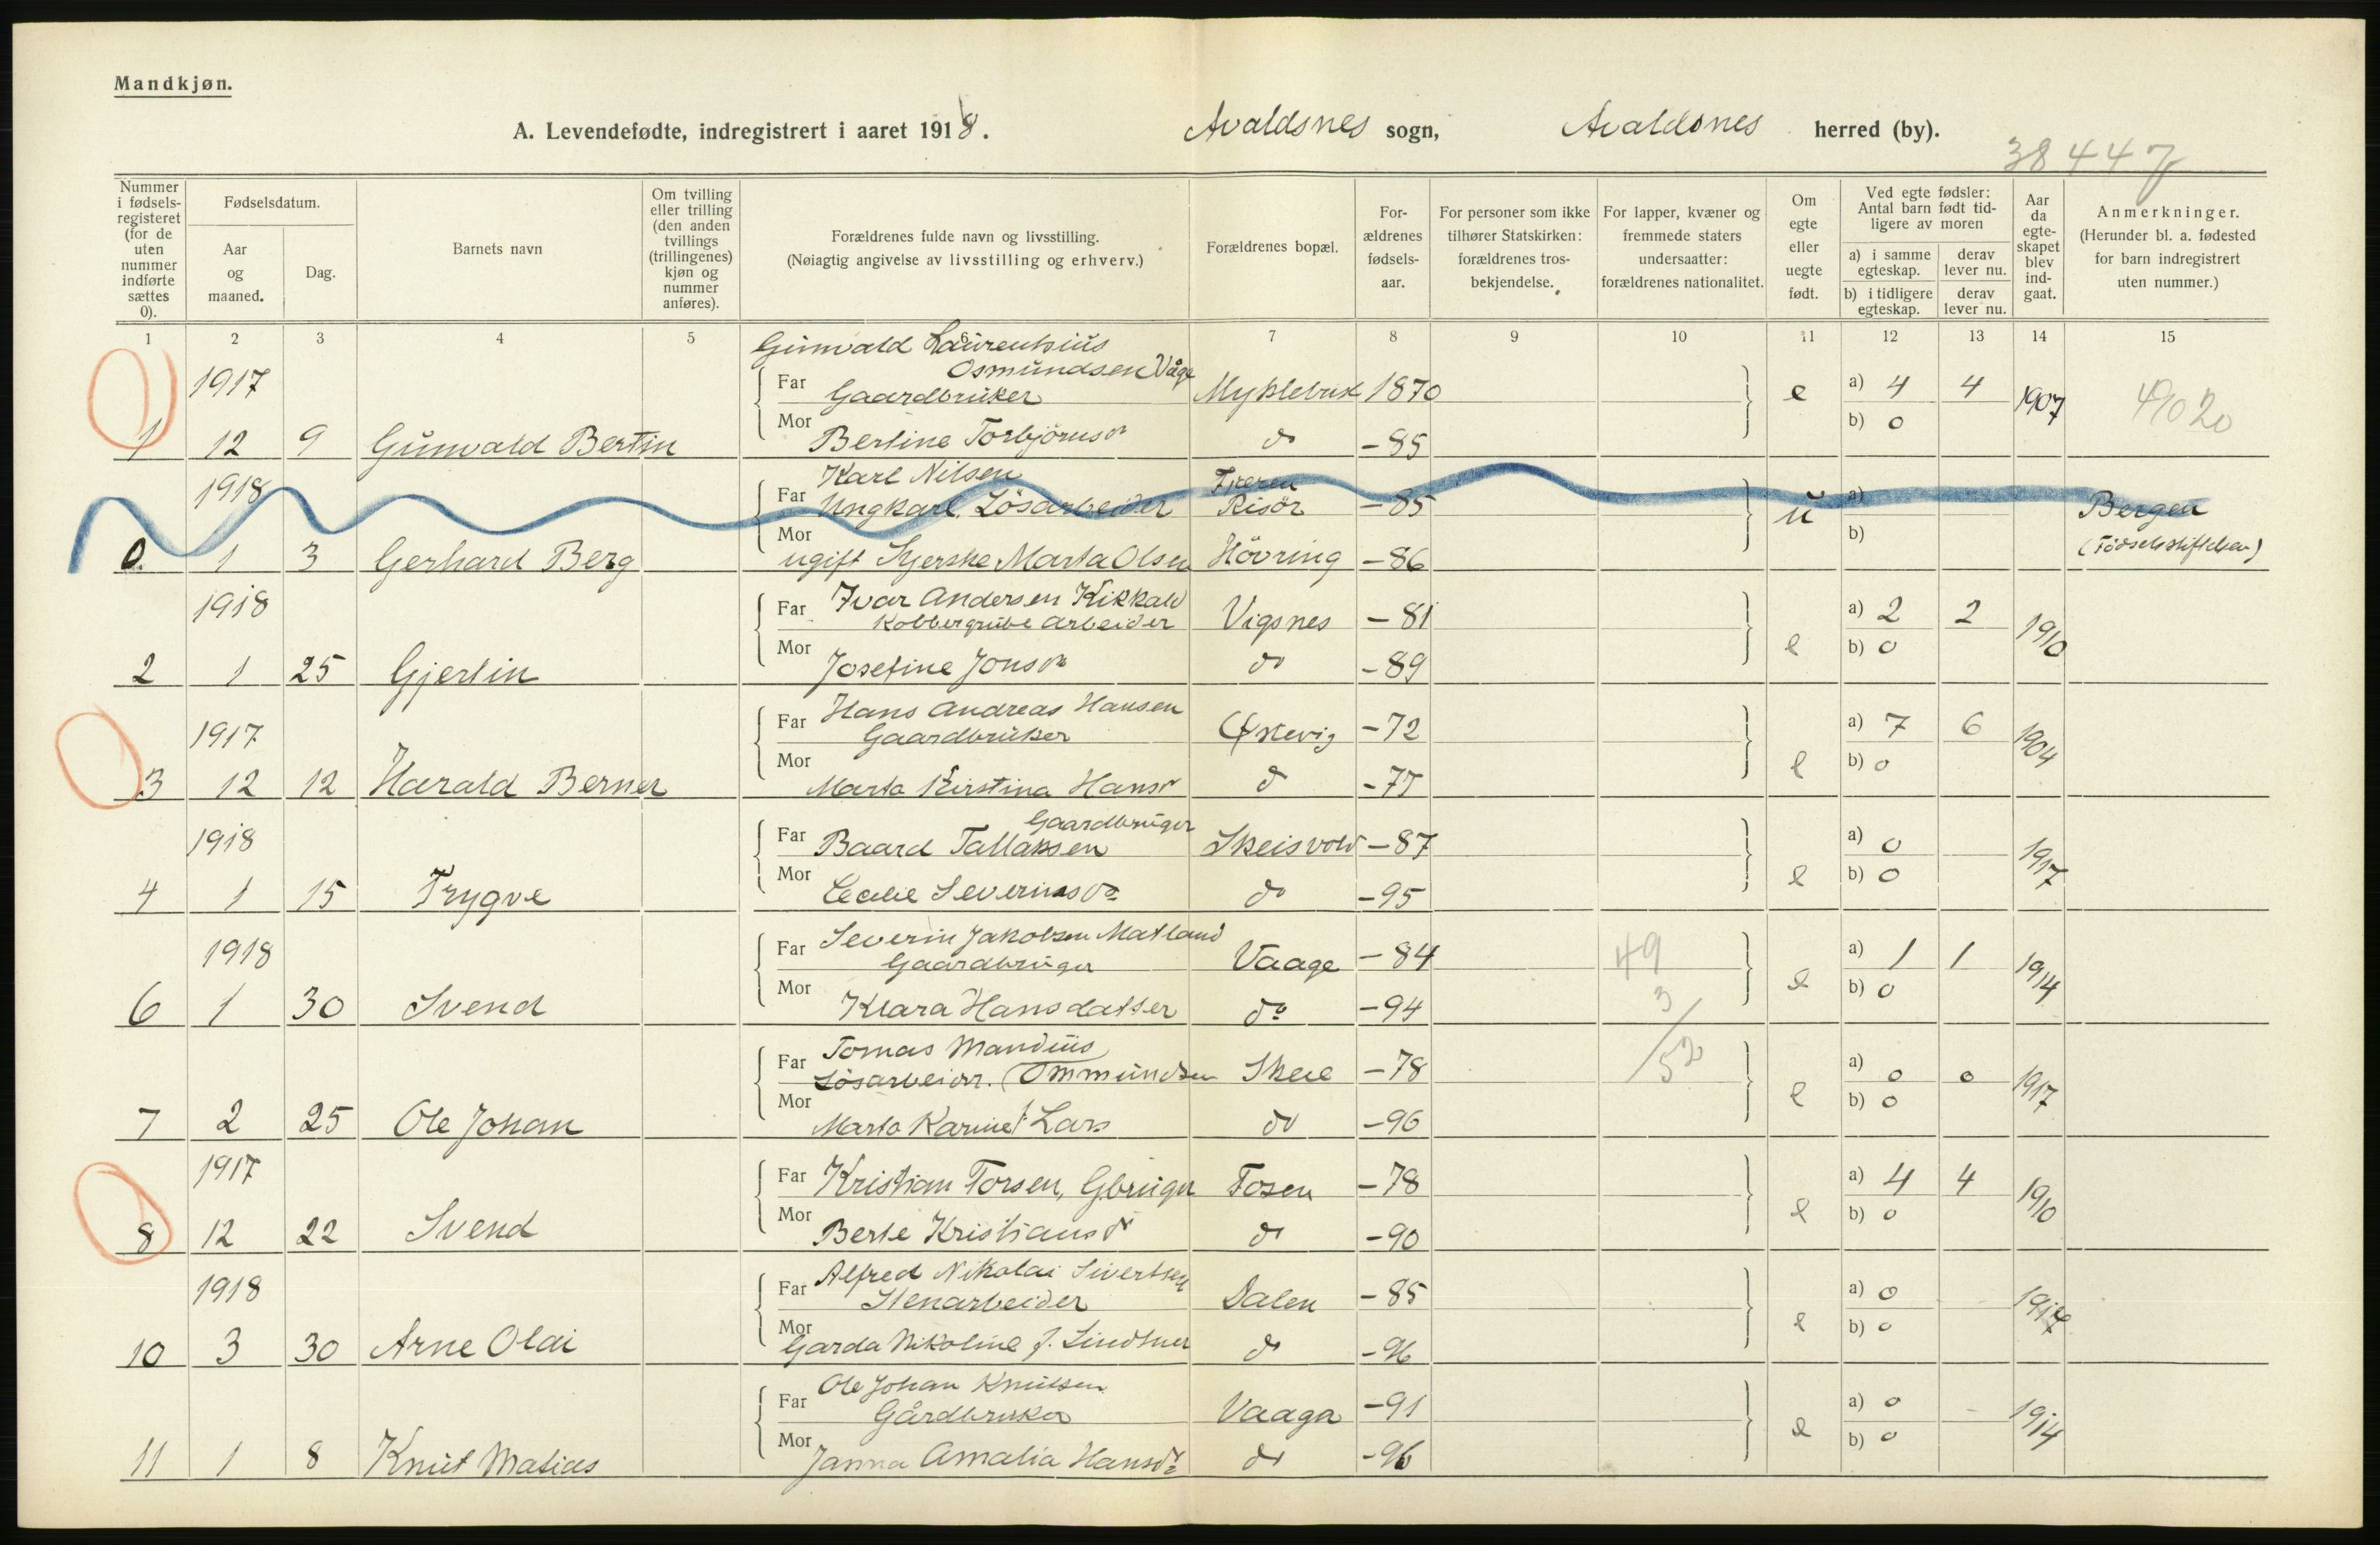 Mandkjøn.
A. Levendefødte, indregistrert i aaret 1918. Avaldsnes sogn, Avaldsnes herred (by).
38447
Nummer i fødsels-registeret (for de uten nummer indførte sættes 0).
Fødselsdatum.
Aar og maaned.
Dag.
Barnets navn
Om tvilling eller trilling (den anden tvillings (trillingenes) kjøn og nummer anføres).
Forældrenes fulde navn og livsstilling.
(Nøiagtig angivelse av livsstilling og erhverv.)
Forældrenes bopæl.
For-ældrenes fødsels-aar.
For personer som ikke tilhører Statskirken: forældrenes tros-bekjendelse.
For lapper, kvæner og fremmede staters undersaatter: forældrenes nationalitet.
Om egte eller uegte født.
Ved egte fødsler: Antal barn født tid-ligere av moren
a) i samme egteskap.
derav lever nu.
b) i tidligere egteskap.
derav lever nu.
Aar da egte-skapet blev ind-gaat.
Anmerkninger.
(Herunder bl. a. fødested for barn indregistrert uten nummer.)
1 2 3 4 5 7 8 9 10 11 12 13 14 15
Gunvald Laurentsius
Osmundsen Våge
1917 Far Gaardbruker Myklebust 1870 e a) 4 4 1907
1 12 9 Gunvald Bertin Mor Bertine Torbjörnsdr do -85 b) 0
4020
Karl Nilsen
1918 Far Ungkarl, Lösarbeider Risör -85 u a) Bergen
0 1 3 Gerhard Berg Mor ugift Syerske Marta Olsen Hövring -86 b) (Födselsstiftelsen)
1918 Far Ivar Andersen Kikkald
Kobbergrube arbeider Vigsnes -81 a) 2 2 1910
2 1 25 Gjertin Mor Josefine Jonsdr do -89 e b) 0
Hans Andreas Hansen
1917 Far Gaardbruker -72 a) 7 6 1904
3 12 12 Harald Berner Mor Marta Kirstina Hansdr do -77 e b) 0
Gaardbruger
1918 Far Baard Tallaksen Skeisvold -87 a) 0 1917
4 1 15 Trygve Mor Cecilie Severinsdr do -95 e b) 0
Severin Jakobsen Matland
1918 Far Gaardbruger Vaage -84 49 a) 1 1 1914
6 1 30 Svend Mor Klara Hansdatter do -94 3 e b) 0
Tomas Mandius
Far Lösarbeider. Ommundsen Skeie -78 52 a) 0 0 1917
7 2 25 Ole Johan Mor Marta Karine Lars do -96 e b) 0
1917 Far Kristian Torsen, Gbruger Fosen -78 a) 4 4 1910
8 12 22 Svend Mor Berte Kristiansdr do -90 e b) 0
Alfred Nikolai Sivertsen
1918 Far Stenarbeider Dalen -85 a) 0 1917
10 3 30 Arne Olai Mor Garda Nikoline J. Lindtner do -96 e b) 0
Ole Johan Knutsen
Far Gårdbruker Vaaga -91 a) 0 1914
11 1 8 Knut Matias Mor Janna Amalia Hansdr do -96 e b) 0